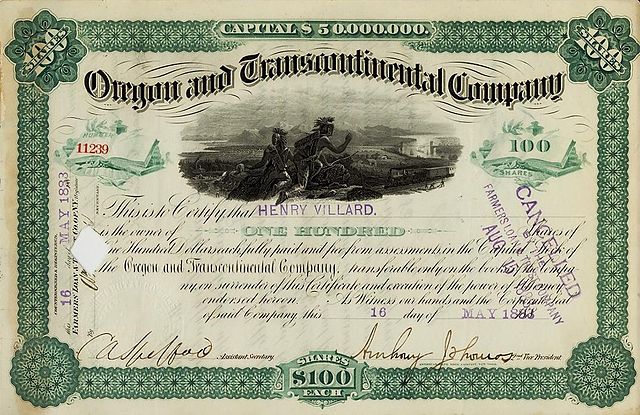 CAPITAL $ 50.000.000.
100
100
Oregon and Transcontinental Company
NUMBER
11239
100
SHARES
This is to Certify that HENRY VILLARD.
is the owner of ONE HUNDRED Shares of
One Hundred Dollars each fully paid and free from assessments in the Capital Stock of
the Oregon and Transcontinental Company, transferable only on the books of the
on surrender of this Certificate and execution of the power of Attorney
endorsed hereon. As Witness our hands and the Corporate Seal
of said Company, this 16 day of MAY 1883
Assistant Secretary
Anthony J Thomas 2nd Vice President
SHARES
$100
EACH
16 MAY 1883
CANCELLED
FARMERS LOAN & TRUST COMPANY
AUG 15